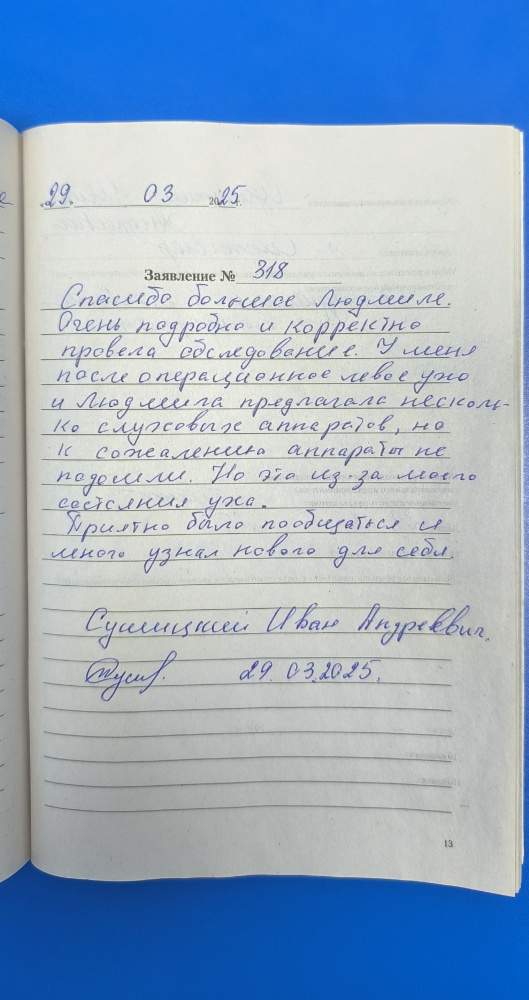 „29" 03 2025г.
Заявление № 318
Спасибо большое Людмиле.
Очень подробно и корректно
провела обследование. У меня
после операционное левое ухо
и Людмила предлагала несколь-
ко слуховых аппаратов, но
к сожалению аппараты не
подошли. Но это из-за моего
состояния уха.
Приятно было пообщаться и
много узнал нового для себя.
Иван Андреевич.
29.03.2025.
13